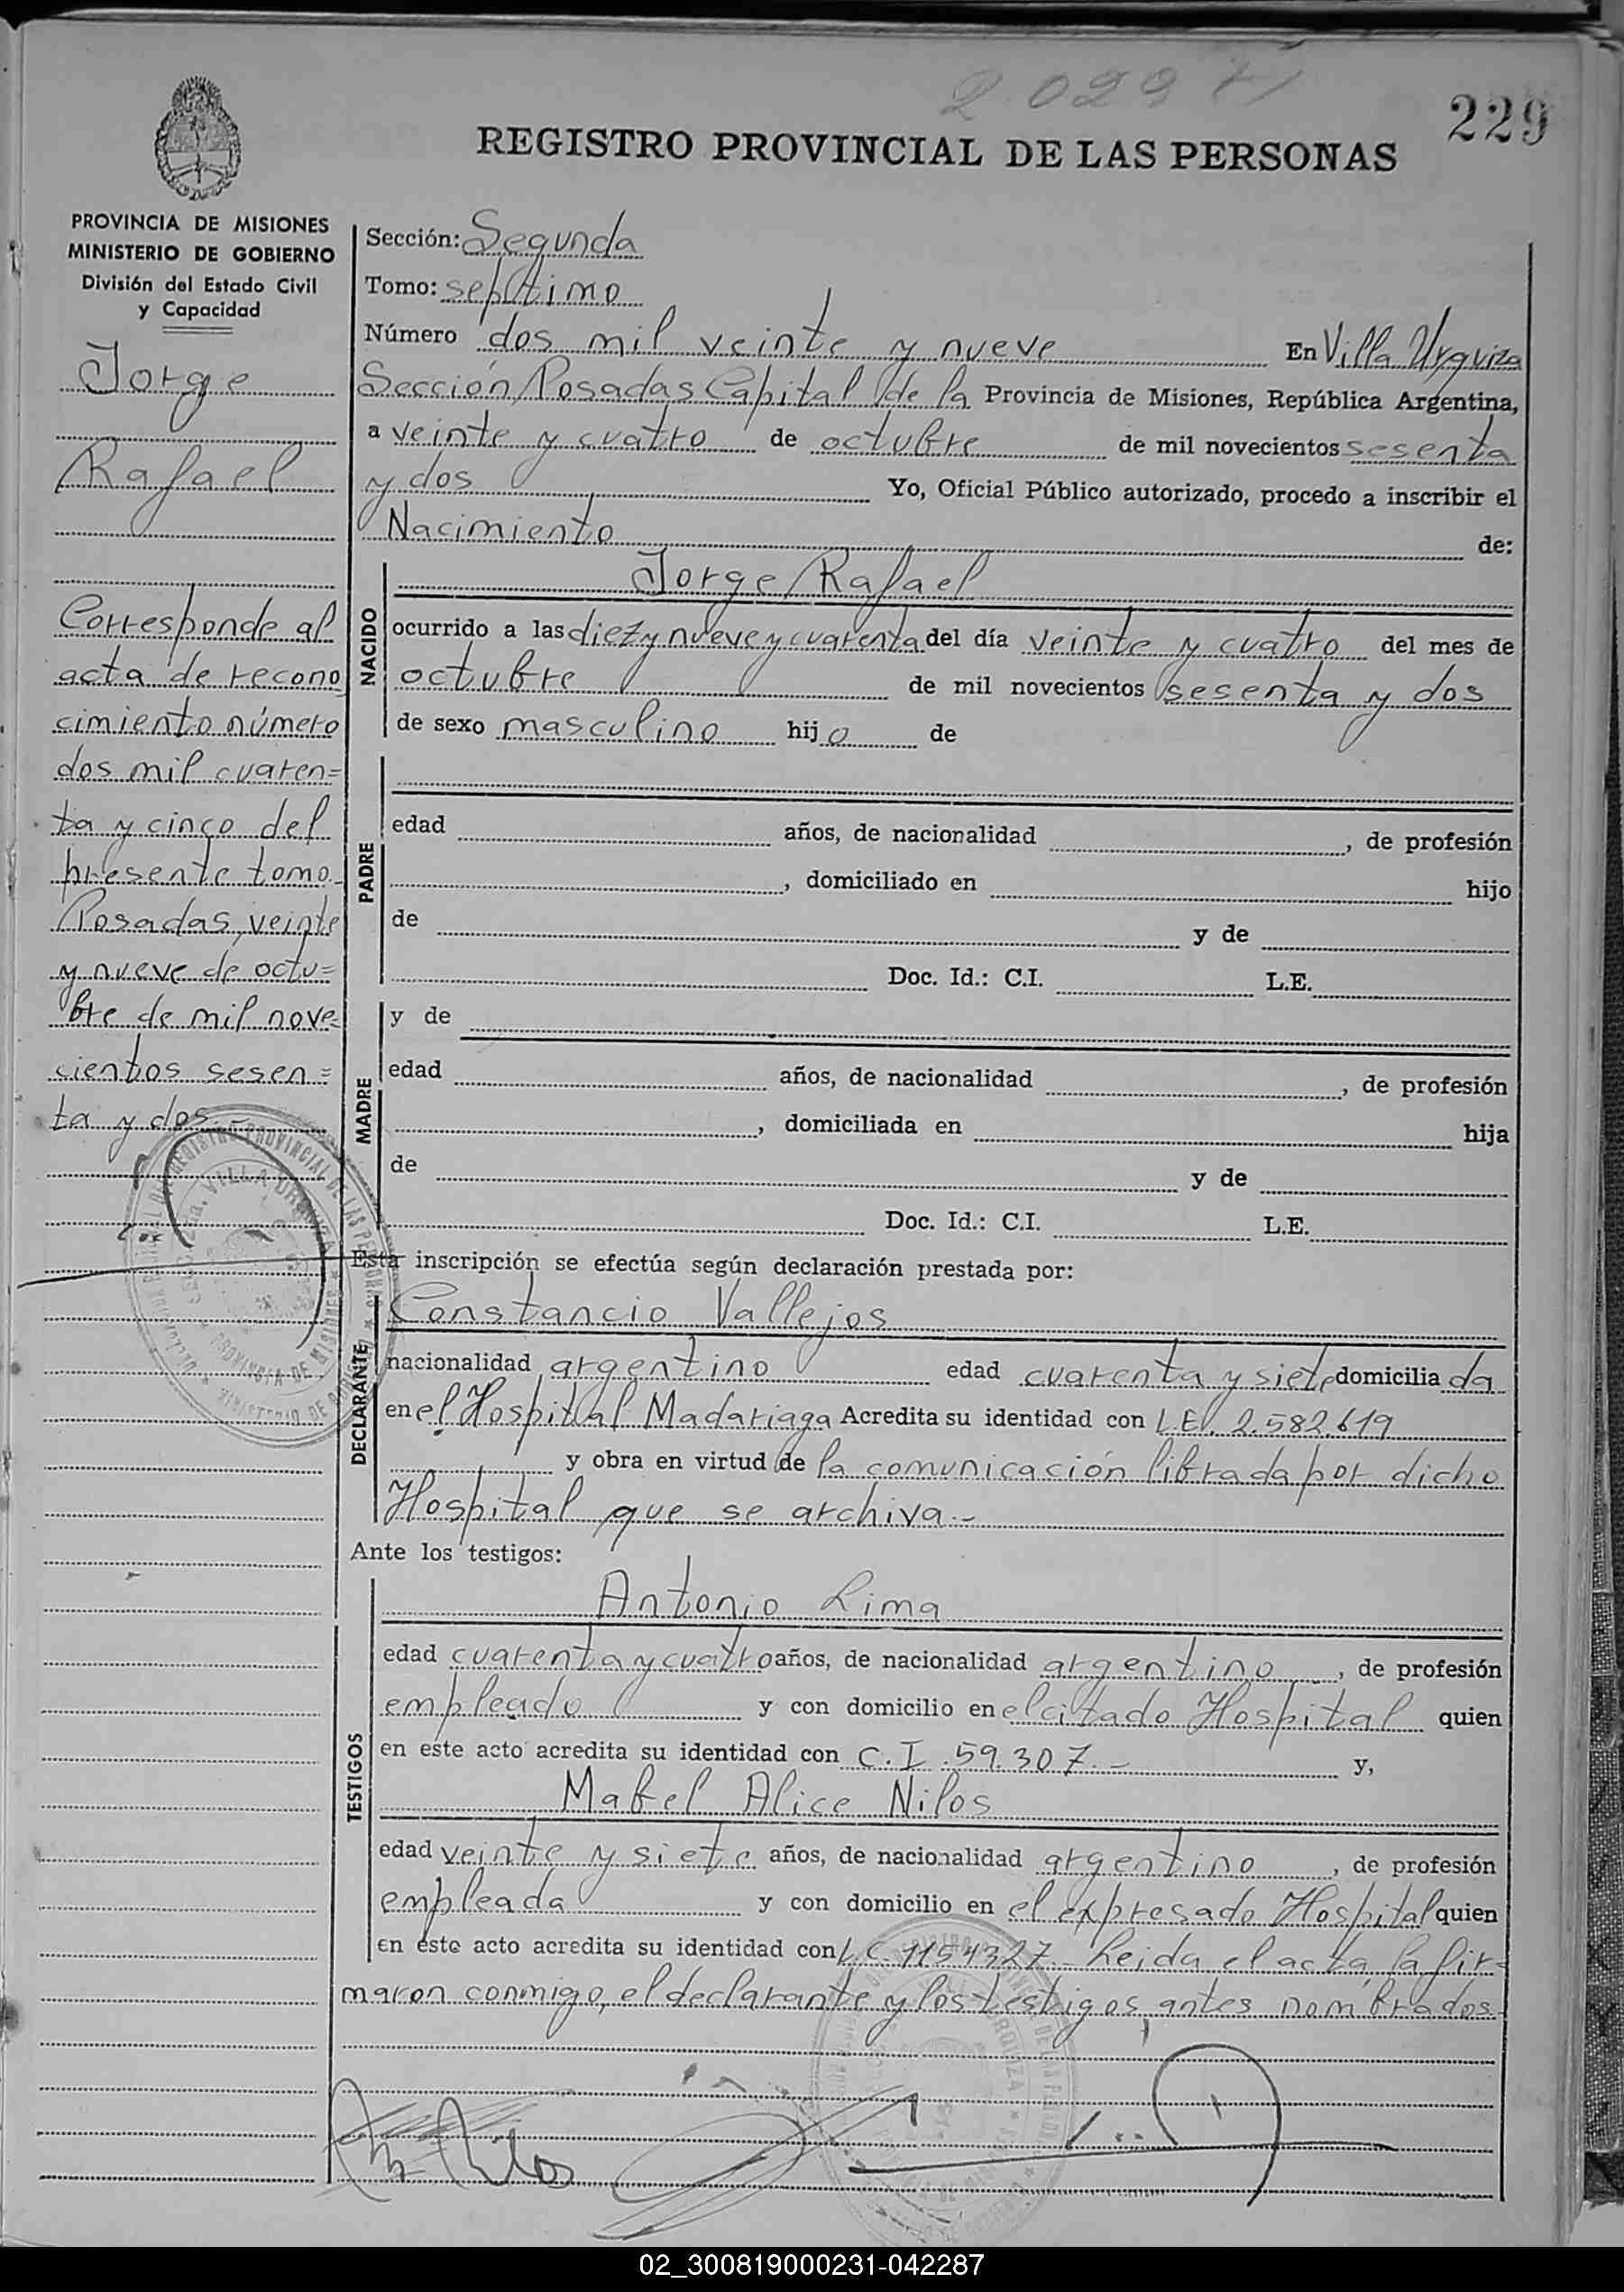 2029
229
REGISTRO PROVINCIAL DE LAS PERSONAS
PROVINCIA DE MISIONES
MINISTERIO DE GOBIERNO
División del Estado Civil
y Capacidad
Jorge
Rafael
Corresponde al
acta de recono
cimiento número
dos mil cuaren=
ta y cinco del
presente tomo.
Posadas, veinte
y nueve de octu=
bre de mil nove=
cientos sesen=
ta y dos.-
Sección: Segunda
Tomo: septimo
Número dos mil veinte y nueve En Villa Urquiza
Sección, Posadas Capital de la Provincia de Misiones, República Argentina,
a veinte y cuatro de octubre de mil novecientos sesenta
y dos Yo, Oficial Público autorizado, procedo a inscribir el
Nacimiento de:
NACIDO
Jorge Rafael
ocurrido a las diez y nueve y cuarenta del día veinte y cuatro del mes de
octubre de mil novecientos sesenta y dos
de sexo masculino hijo de
PADRE
edad años, de nacionalidad , de profesión
, domiciliado en hijo
de y de
Doc. Id.: C.I. L.E.
MADRE
y de
edad años, de nacionalidad , de profesión
, domiciliada en hija
de y de
Doc. Id.: C.I. L.E.
Esta inscripción se efectúa según declaración prestada por:
DECLARANTE
Constancio Vallejos
nacionalidad argentino edad cuarenta y siete domicilia da
en el Hospital Madariaga Acredita su identidad con L.E. 2.582.619
y obra en virtud de la comunicación librada por dicho
Hospital que se archiva.-
Ante los testigos:
TESTIGOS
Antonio Lima
edad cuarenta y cuatro años, de nacionalidad argentino , de profesión
empleado y con domicilio en el citado Hospital quien
en este acto acredita su identidad con C.I. 59.307.- y,
Mabel Alice Nilos
edad veinte y siete años, de nacionalidad argentino , de profesión
empleada y con domicilio en el expresado Hospital quien
en este acto acredita su identidad con L.C. 1154327.- Leida el acta, la fir-
maron conmigo, el declarante y los testigos antes nombrados.-
02_300819000231-042287